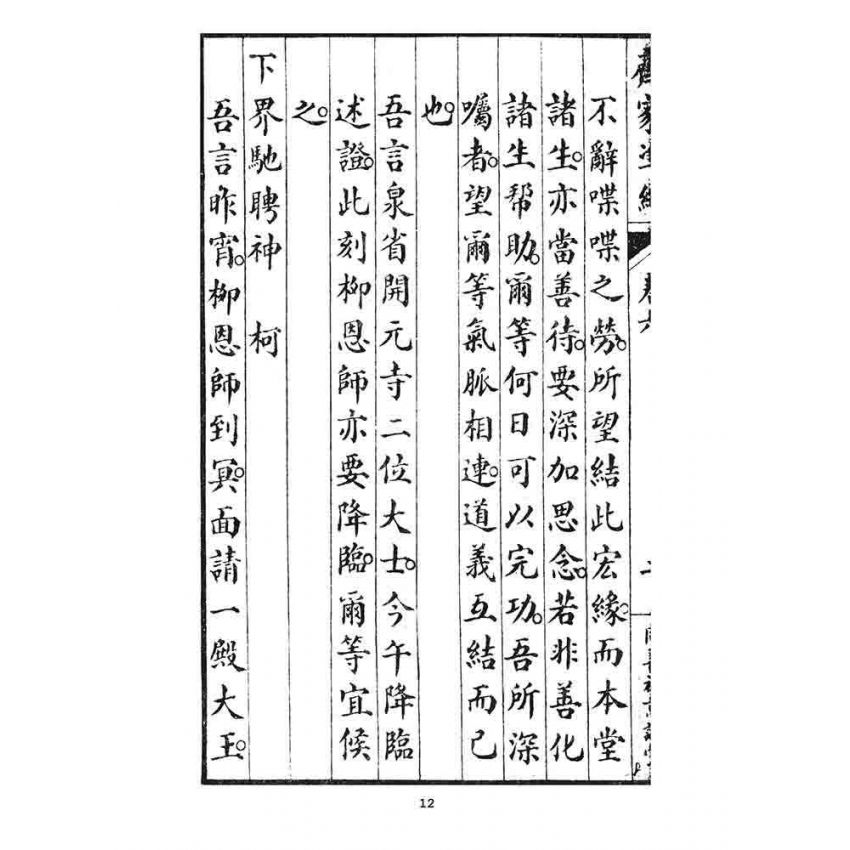 不辭喋喋之勞。所望結此宏緣。而本堂
諸生。亦當善待。要深加思念。若非善化
諸生帮助。爾等何日可以完功。吾所深
囑者。望爾等氣脈相連。道義互結而已
也。
吾言泉省開元寺二位大士。今午降臨
述證。此刻柳恩師亦要降臨。爾等宜候
之。
下界馳聘神　柯
吾言昨宵。柳恩師到冥。面請一殿大王。
12